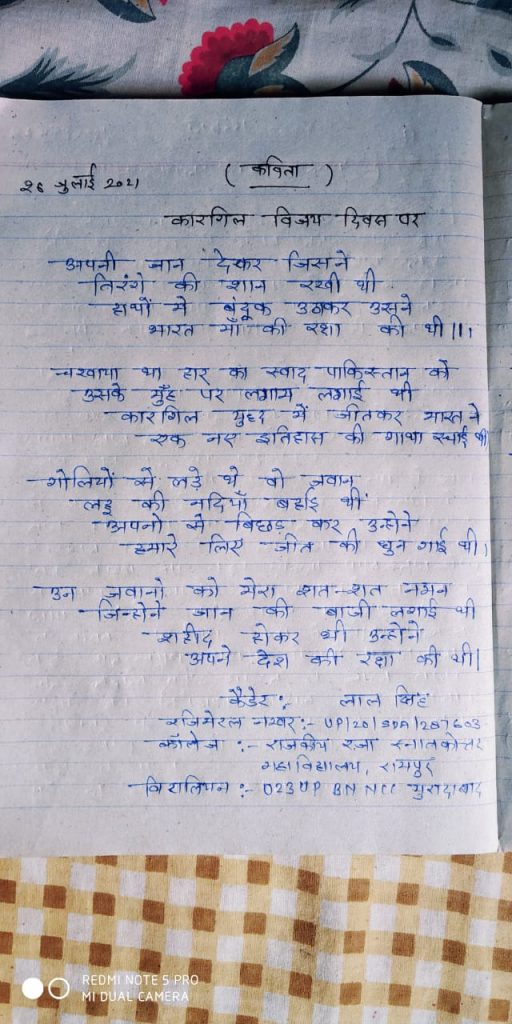 ( कविता )
26 जुलाई 2021
कारगिल विजय दिवस पर
अपनी जान देकर जिसने
तिरंगे की शान रखी थी
हाथों मे बंदूक उठाकर उसने
भारत माँ की रक्षा की थी ।।।
चखाया था हार का स्वाद पाकिस्तान को
उसके मुँह पर लगाम लगाई थी
कारगिल युद्द में जीतकर भारत ने
एक नए इतिहास की गाथा रचाई थी
गोलियों से लड़े थे वो जवान
लहू की नदियाँ बहाई थीं
अपनो से बिछड़ कर उन्होने
हमारे लिए जीत की धुन गाई थी।
उन जवानो को मेरा शत-शत नमन
जिन्होने जान की बाजी लगाई थी
शहीद होकर भी उन्होने
अपने देश की रक्षा की थी।
कैडेट :- लाल सिंह
रजिमेंटल नम्बर :- UP/20/SDA/287603
कॉलेज :- राजकीय रजा स्नातकोत्तर
महाविद्यालय, रामपुर
बटालियन :- 023 UP BN NCC मुरादाबाद
REDMI NOTE 5 PRO
MI DUAL CAMERA